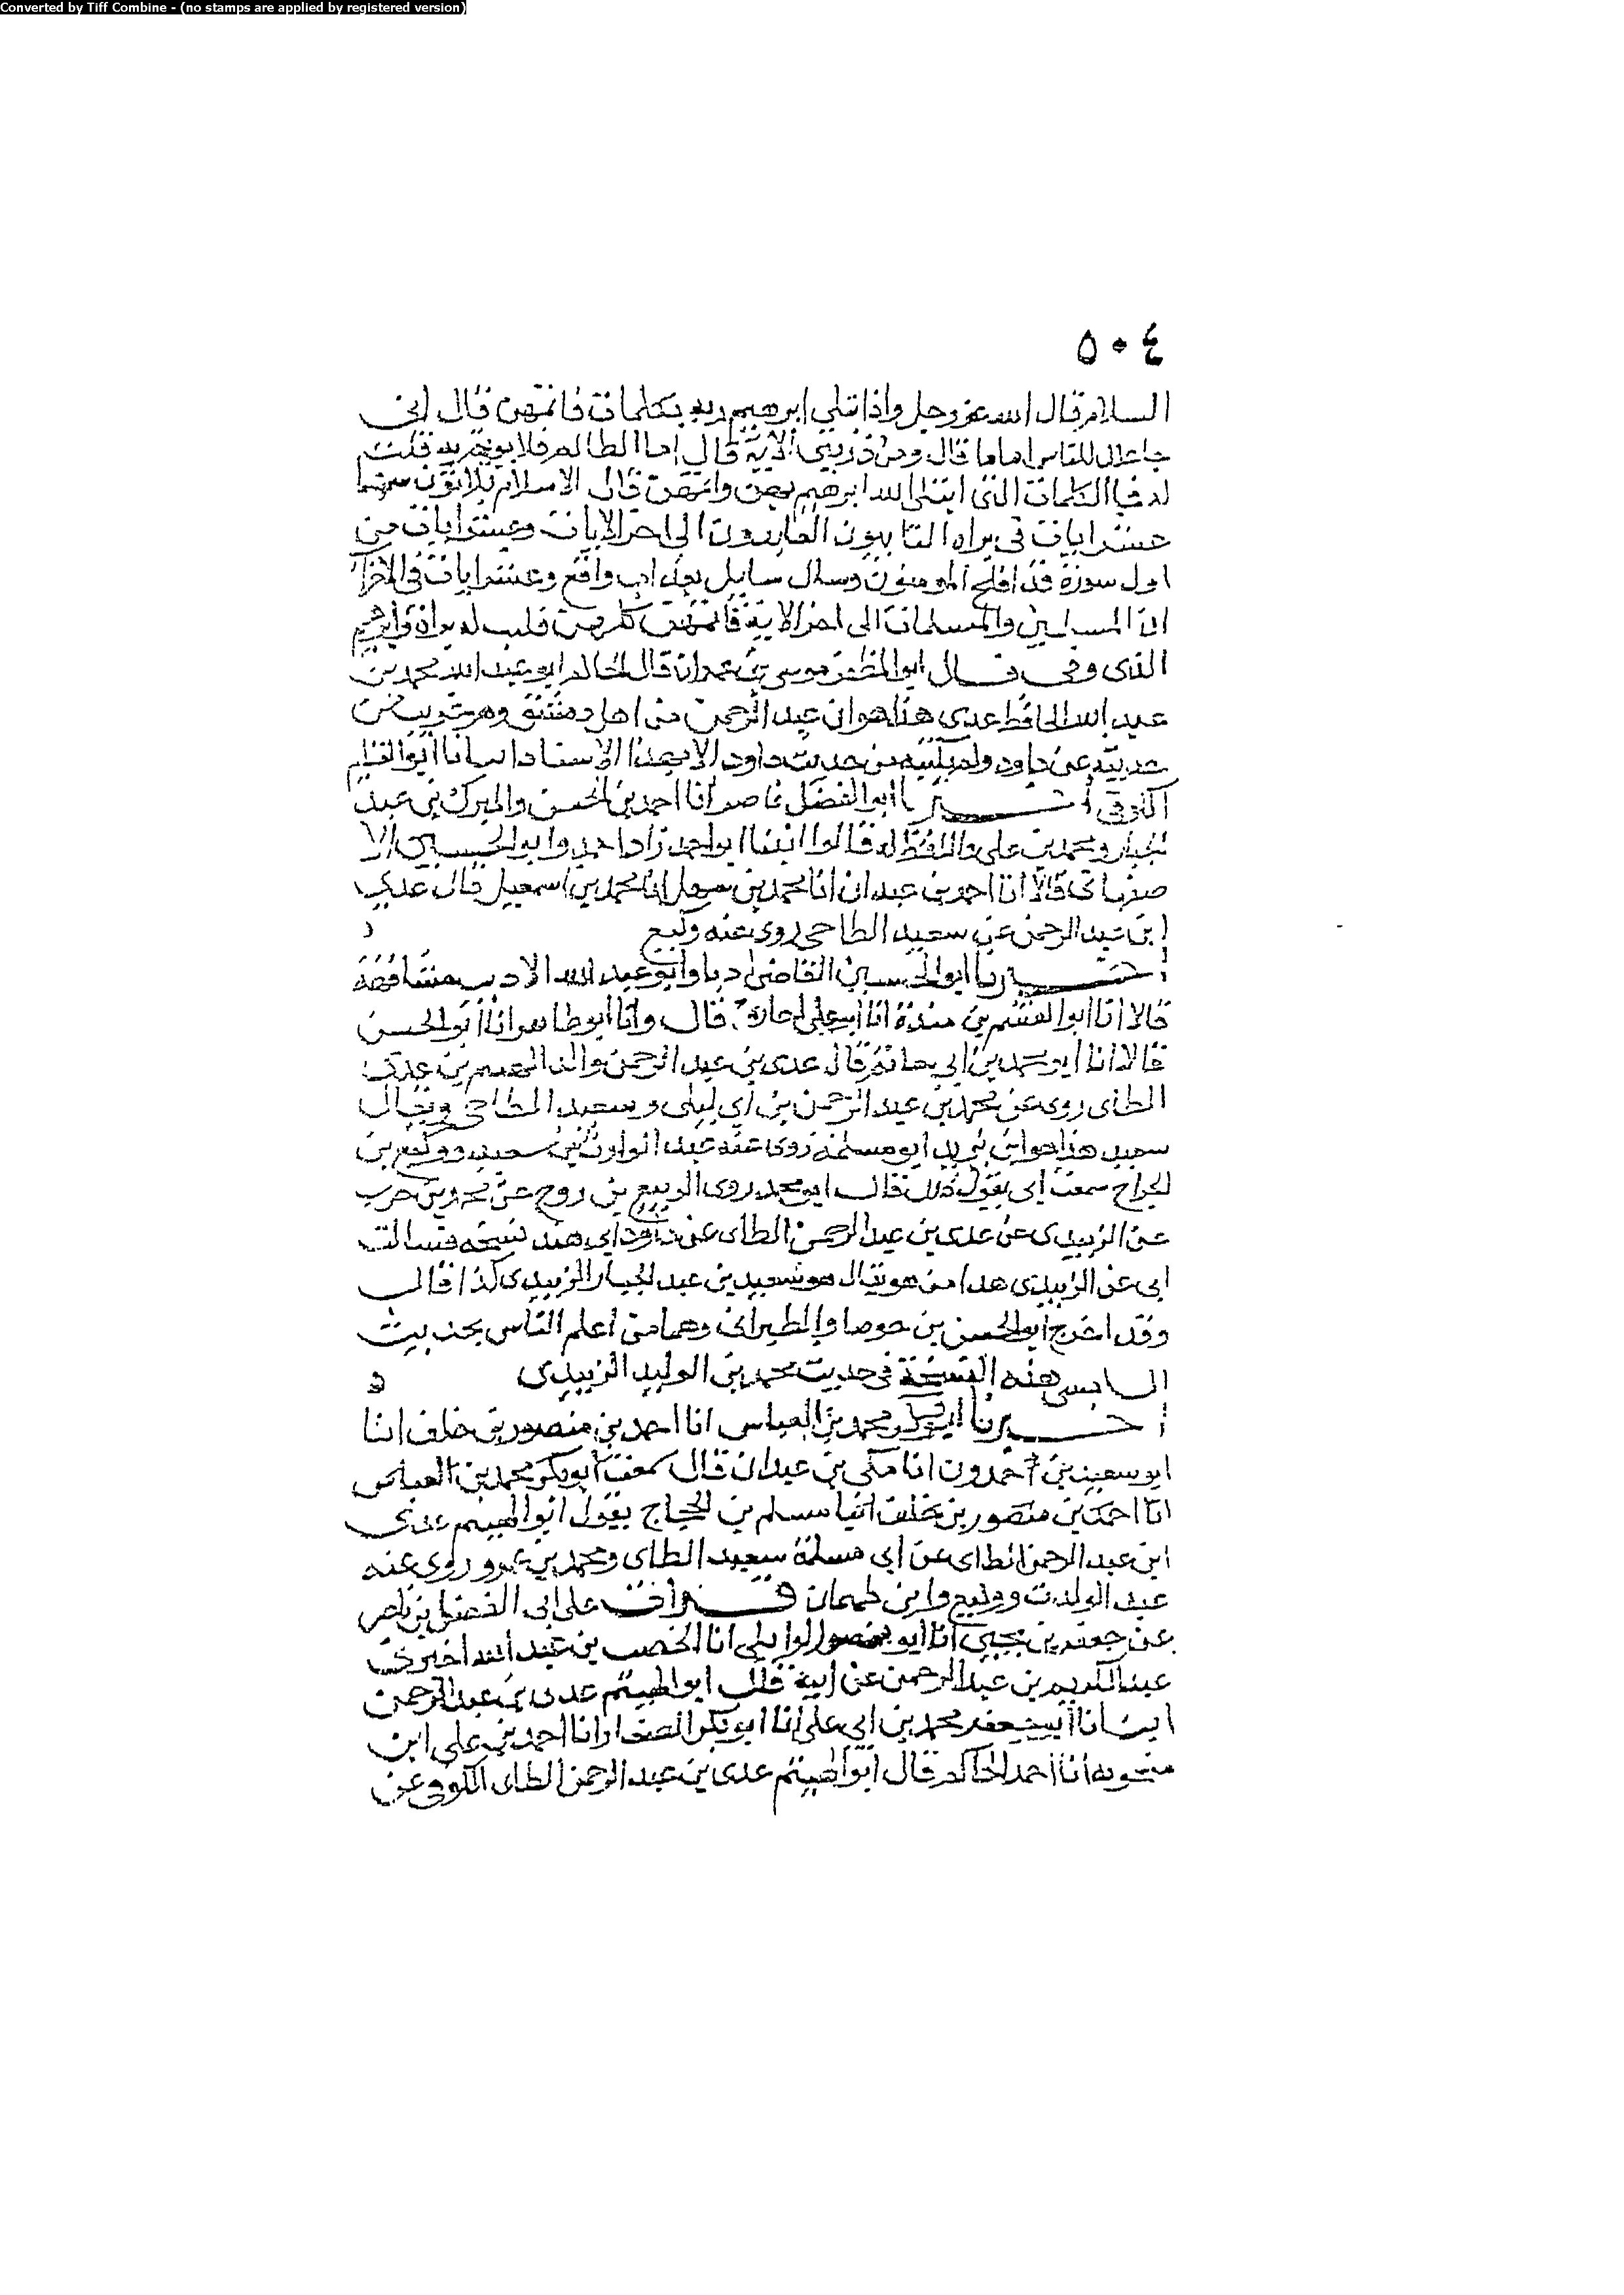 Converted by Tiff Combine - (no stamps are applied by registered version)
٥٠٤
السلام قال الله عز وجل واذ ابتلي ابرهيم ربه بكلمات فاتمهن قال اني
جاعلك للناس اماما قال ومن ذريتي الاية قال اما الظالم فلا يوتم به قلت
له فما الكلمات التي ابتلى الله ابرهيم بهن واتمهن قال الاسلام ثلاثون سهما
عشر ايات في براه التايبون العابدون الى اخر الايات وعشر ايات من
اول سورة قد افلح المومنون وسال سايل بعذاب واقع وعشر ايات في الاحزاب
ان المسلمين والمسلمات الى اخر الاية فاتمهن كلهن فكتب له براة وابرهيم
الذي وفى قال ابو المظفر موسى بن عمران قال الحاكم ابو عبد الله محمد بن
عبد الله الحافظ عدي هذا هو ابن عبد الرحمن من اهل دمشق وهو غريب من
حديثه عن داود ولم نكتبه من حديث داود الا بهذا الاسناد انبانا ابو الغنايم
الكوفي اخبرنا ابو الفضل بن ناصر انا احمد بن الحسن والمبرك بن عبد
الجبار ومحمد بن علي واللفظ له قالوا انبنا ابو احمد زاد احمد وابو الحسين الا
صبهاني قالا انا احمد بن عبدان انا محمد بن سهل انا محمد بن اسمعيل قال عدي
ابن عبد الرحمن عن سعيد الطاحي روى عنه وكيع
اخبرنا ابو الحسين القاضي اذنا وابو عبد الله الاديب مشافهة
قالا انا ابو القسم بن مندة انا ابو علي اجازة ح قال وانا ابو طاهر انا ابو الحسن
قالا انا ابو محمد بن ابي حاتم قال عدي بن عبد الرحمن والد الهيثم بن عدي
الطاى روى عن محمد بن عبد الرحمن بن ابي ليلى وسعيد الطاحي ويقال
سعيد هذا هو ابن يزيد ابو مسلمة روى عنه عبد الوارث بن سعيد ووكيع بن
الجراح سمعت ابي يقول ذلك قال ابو محمد روى الربيع بن روح عن محمد بن حرب
عن الزبيدي عن عدي بن عبد الرحمن الطاى عن داود ابي هند نسخة فسالت
ابي عن الزبيدي هذا من هو فقال هو سعيد بن عبد الجبار الزبيدي كذا قال
وقد اخرج ابو الحسن بن جوصا والطبراني وهما من اعلم الناس بحديث
هذه النسخة في حديث محمد بن الوليد الزبيدي
اخبرنا ابو بكر محمد بن العباس انا احمد بن منصور بن خلف انبا
ابو سعيد بن حمدون انا مكي بن عبدان قال سمعت ابو بكر محمد بن العباس
انا احمد بن منصور بن خلف انبا مسلم بن الحجاج يقول ابو الهيثم عدي
ابن عبد الرحمن الطاى عن ابي مسلمة سعيد الطاى ومحمد بن عمرو روى عنه
عبد الوارث ووكيع وابن طهمان قرات على ابي الفضل بن ناصر
عن جعفر بن يحيى انا ابو نصر الوايلي انا الخصيب بن عبد الله اخبرني
عبد الكريم بن عبد الرحمن عن ابيه قال ابو الهيثم عدي بن عبد الرحمن
انبانا ابو جعفر محمد بن ابي علي انا ابو بكر الصفار انا احمد بن علي ابن
منجويه انا احمد الحاكم قال ابو الهيثم عدي بن عبد الرحمن الطاى الكوفي عن